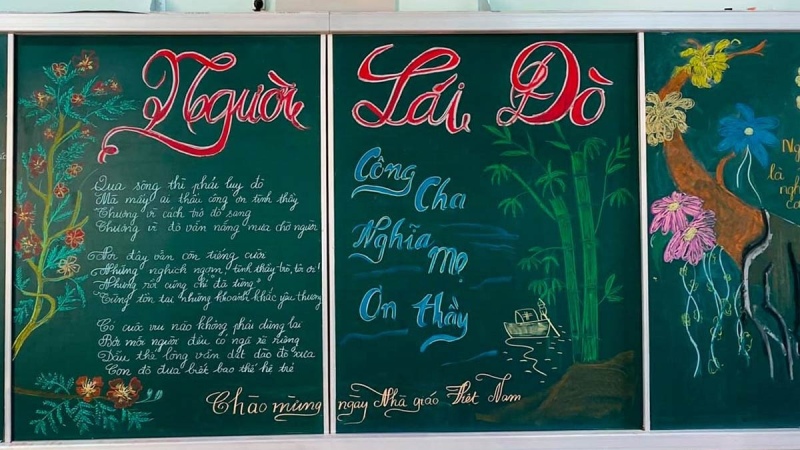 Người
Lái Đò
Qua sông thì phải luy đò
Mã mấy ai thấu công ơn tình thầy
Thương vì cách trò đò sang
Thương vì đò vẫn nắng mưa chở người
Nơi đây vẫn còn tiếng cười
Những nghịch ngợm, tình thầy trò, tôi ơi!
Nhưng rồi cũng chỉ "đã từng"
Từng tồn tại những khoảnh khắc yêu thương
Có cuộc vui nào không phải dừng lại
Bởi mỗi người đều có ngã rẽ riêng
Dẫu thế lòng vẫn dứt đò xưa
Con đò đưa biết bao thế hệ trẻ
Công Cha
Nghĩa Mẹ
Ơn thầy
Chào mừng ngày Nhà giáo Việt Nam
Ng
là
ngh
ca